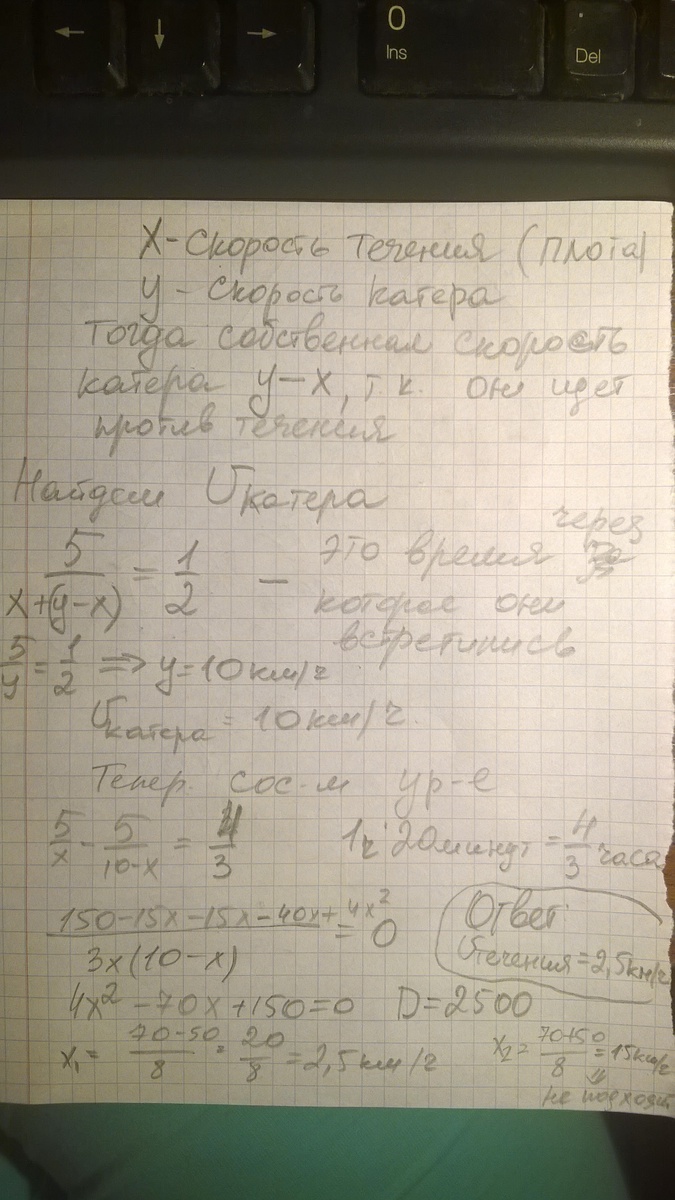 ←
↓
→
0
Ins
.
Del
X - скорость течения (плота)
y - скорость катера
Тогда собственная скорость
катера y-x, т.к. он идет
против течения
Найдем Vкатера
5/(x+(y-x)) = 1/2 - это время через
которое они
встретились
5/y = 1/2 => y=10км/ч
Vкатера = 10км/ч.
Тепер. сос-м ур-е
5/x - 5/(10-x) = 4/3 1ч 20минут = 4/3 часа
(150-15x-15x-40x+4x²)/(3x(10-x)) = 0
Ответ:
Vтечения=2,5км/ч
4x²-70x+150=0 D=2500
x₁ = (70-50)/8 = 20/8 = 2,5км/ч x₂ = (70+50)/8 = 15км/г
не подходит